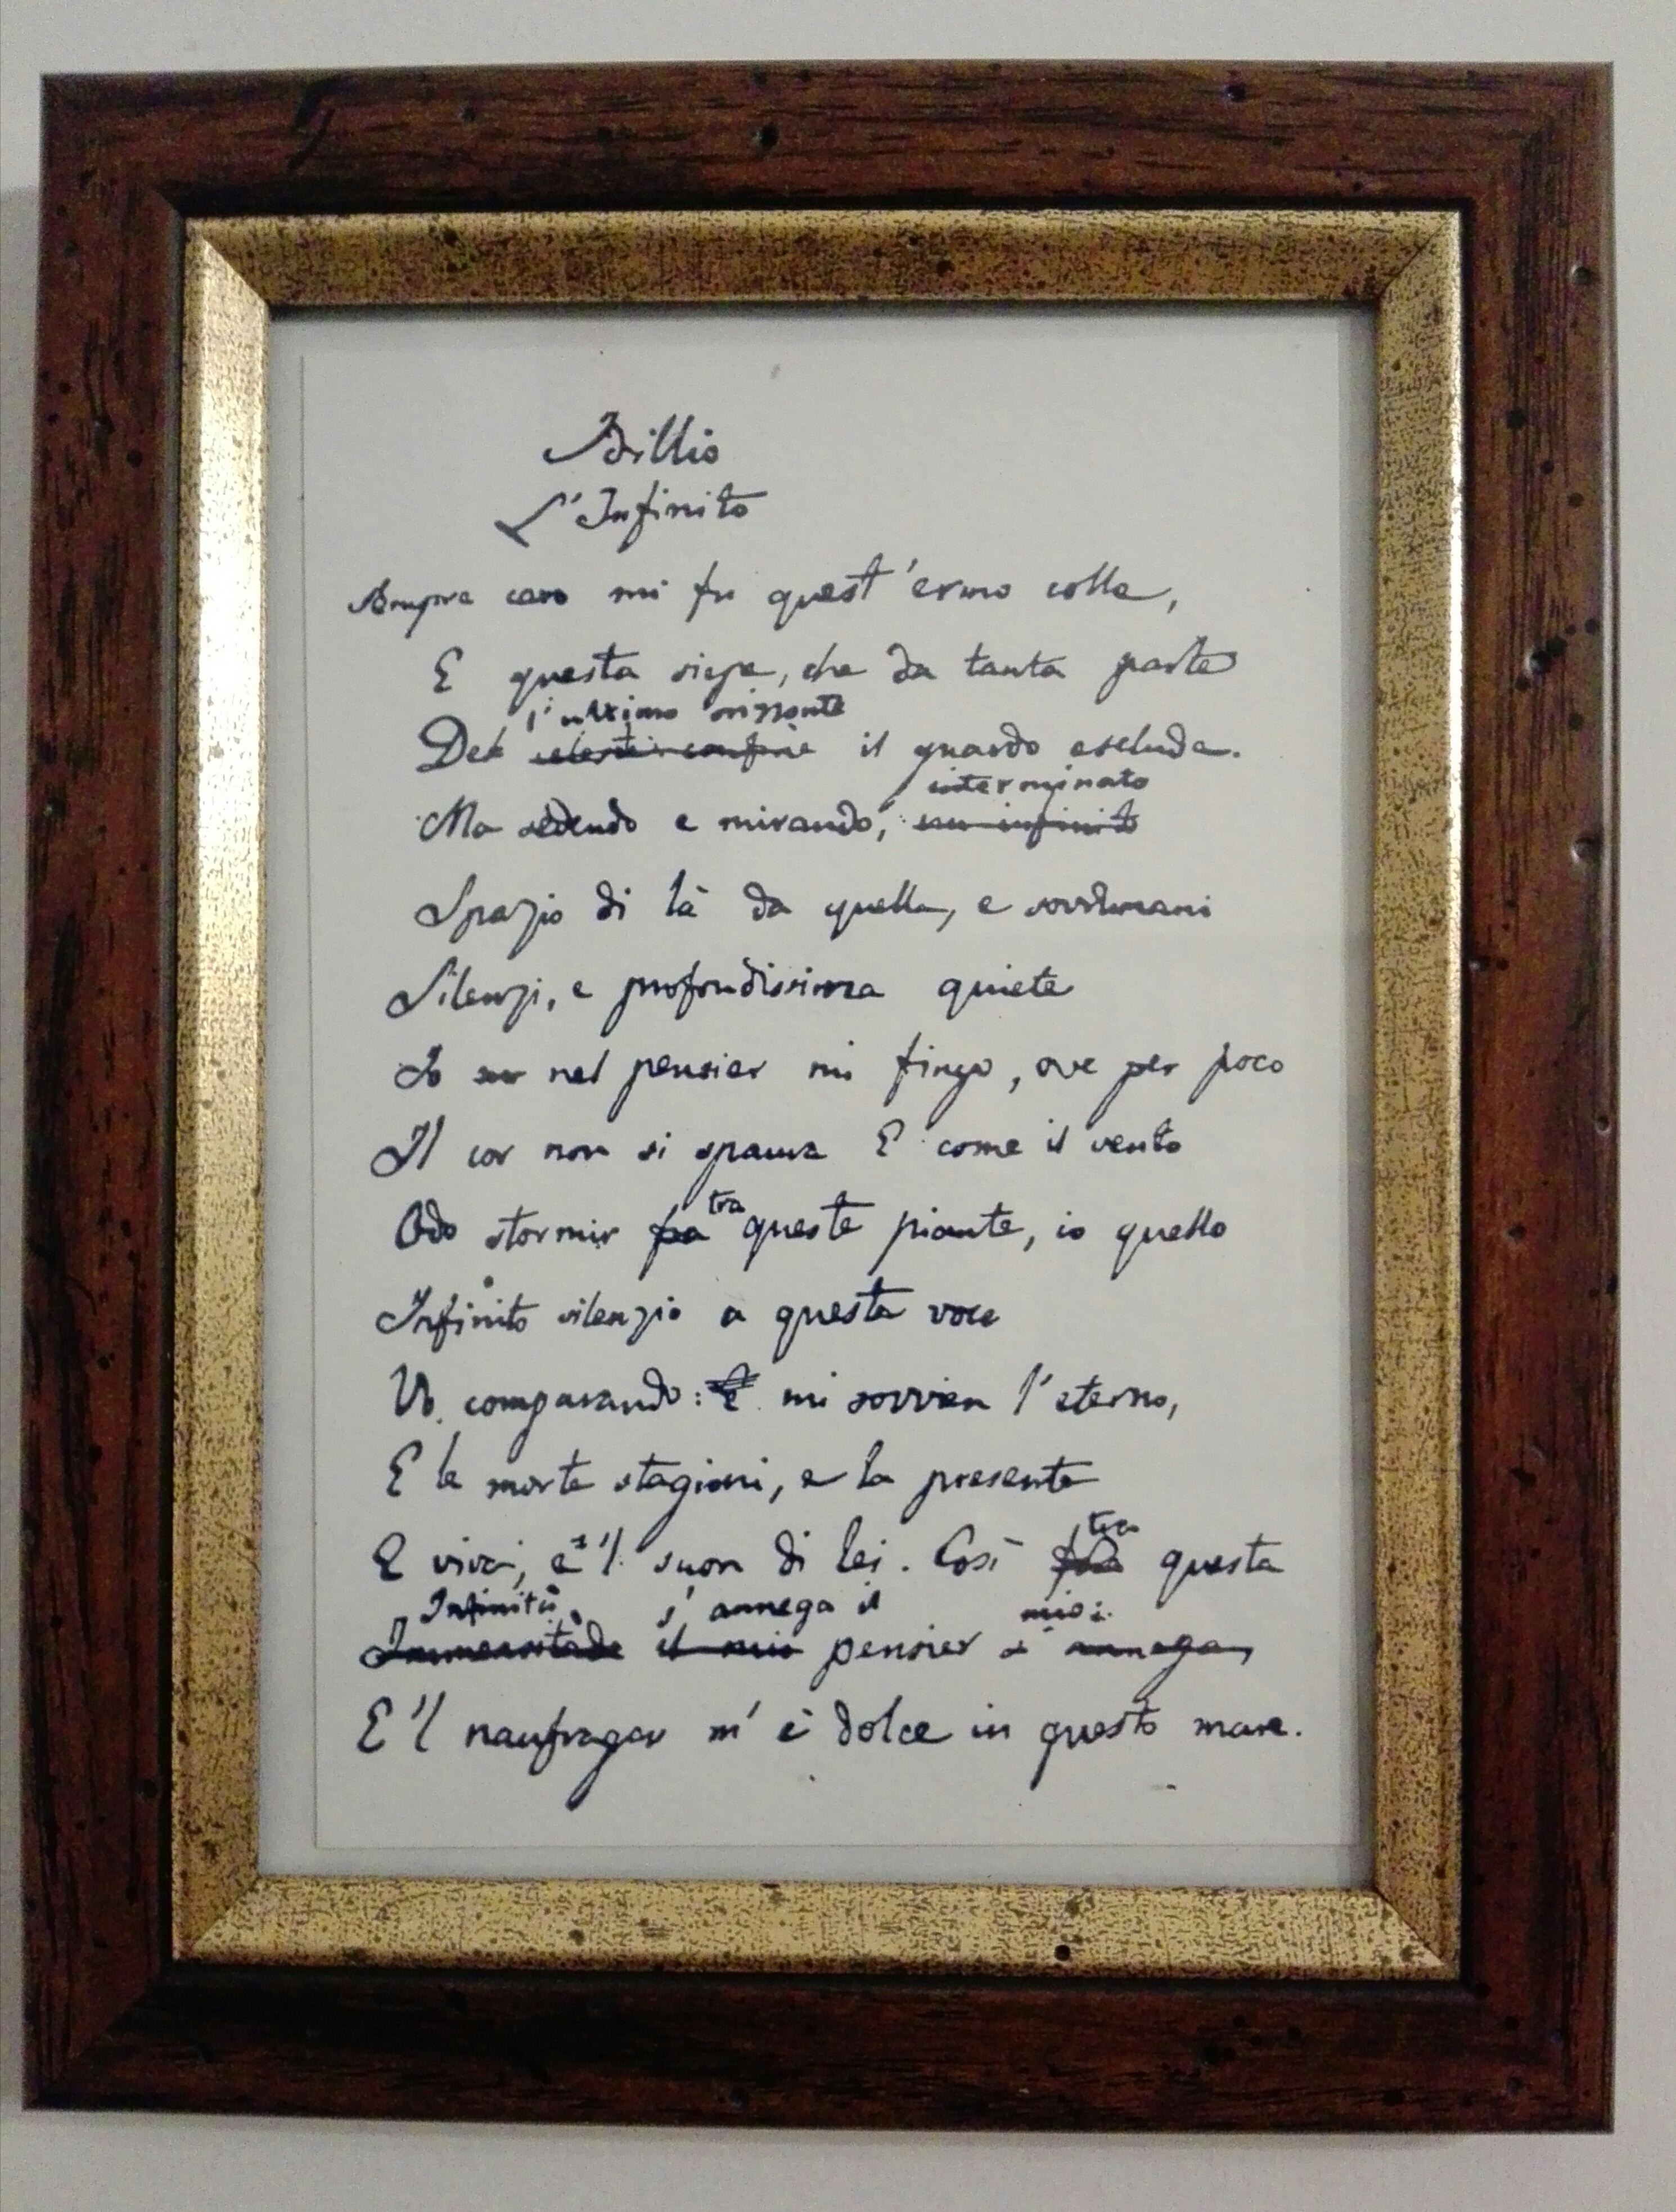 Idillio
L'Infinito
Sempre caro mi fu quest'ermo colle,
E questa siepe, che da tanta parte
l'ultimo orizzonte
Del celeste confine il guardo esclude.
interminato
Ma sedendo e mirando, un infinito
Spazio di là da quella, e sovrumani
Silenzi, e profondissima quiete
Io nel pensier mi fingo, ove per poco
Il cor non si spaura E come il vento
tra
Odo stormir fra queste piante, io quello
Infinito silenzio a questa voce
Vo comparando: E mi sovvien l'eterno,
E le morte stagioni, e la presente
tra
E viva, e 'l suon di lei. Così fra questa
Infinità s'annega il mio:
Immensitade il mio pensier s'annega,
E 'l naufragar m'è dolce in questo mare.